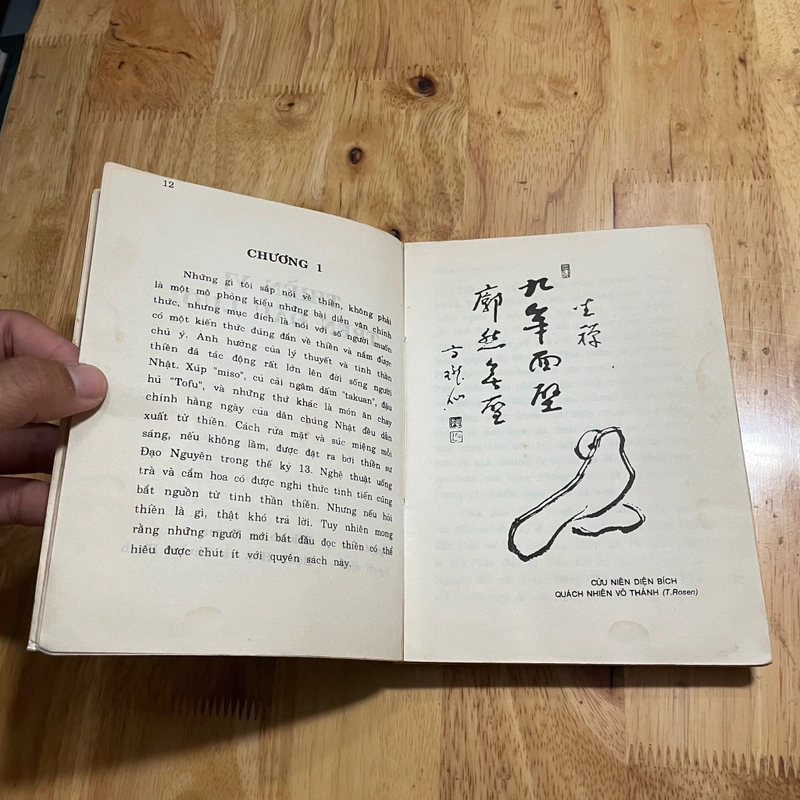 12
CHƯƠNG 1
Những gì tôi sắp nói về thiền, không phải
là một mô phỏng kiểu những bài diễn văn chính
thức, nhưng mục đích là nói với số người muốn
có một kiến thức đúng đắn về thiền và nắm được
chú ý. Ảnh hưởng của lý thuyết và tinh thần
thiền đã tác động rất lớn lên đời sống người
Nhật. Xúp "miso", củ cải ngâm dấm "takuan", đậu
hủ "Tofu", và những thứ khác là món ăn chay
chính hàng ngày của dân chúng Nhật đều dẫn
xuất từ thiền. Cách rửa mặt và súc miệng mỗi
sáng, nếu không lầm, được đặt ra bởi thiền sư
Đạo Nguyên trong thế kỷ 13. Nghệ thuật uống
trà và cắm hoa có được nghi thức tinh tiến cũng
bắt nguồn từ tinh thần thiền. Nhưng nếu hỏi
thiền là gì, thật khó trả lời. Tuy nhiên mong
rằng những người mới bắt đầu đọc thiền có thể
hiểu được chút ít với quyển sách này.
坐禪
九年面壁
廓然無聖
CỬU NIÊN DIỆN BÍCH
QUÁCH NHIÊN VÔ THÁNH (T.Rosen)